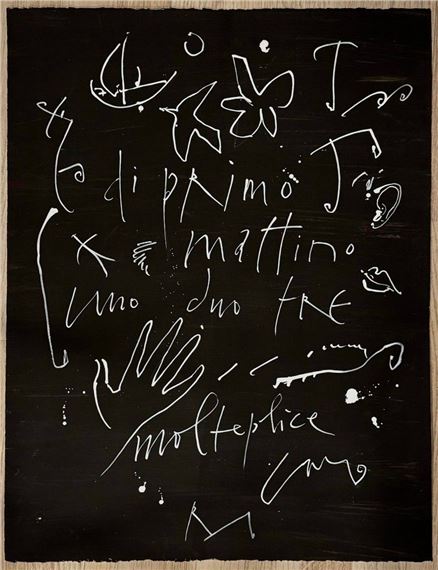 di primo
mattino
uno duo tre
molteplice